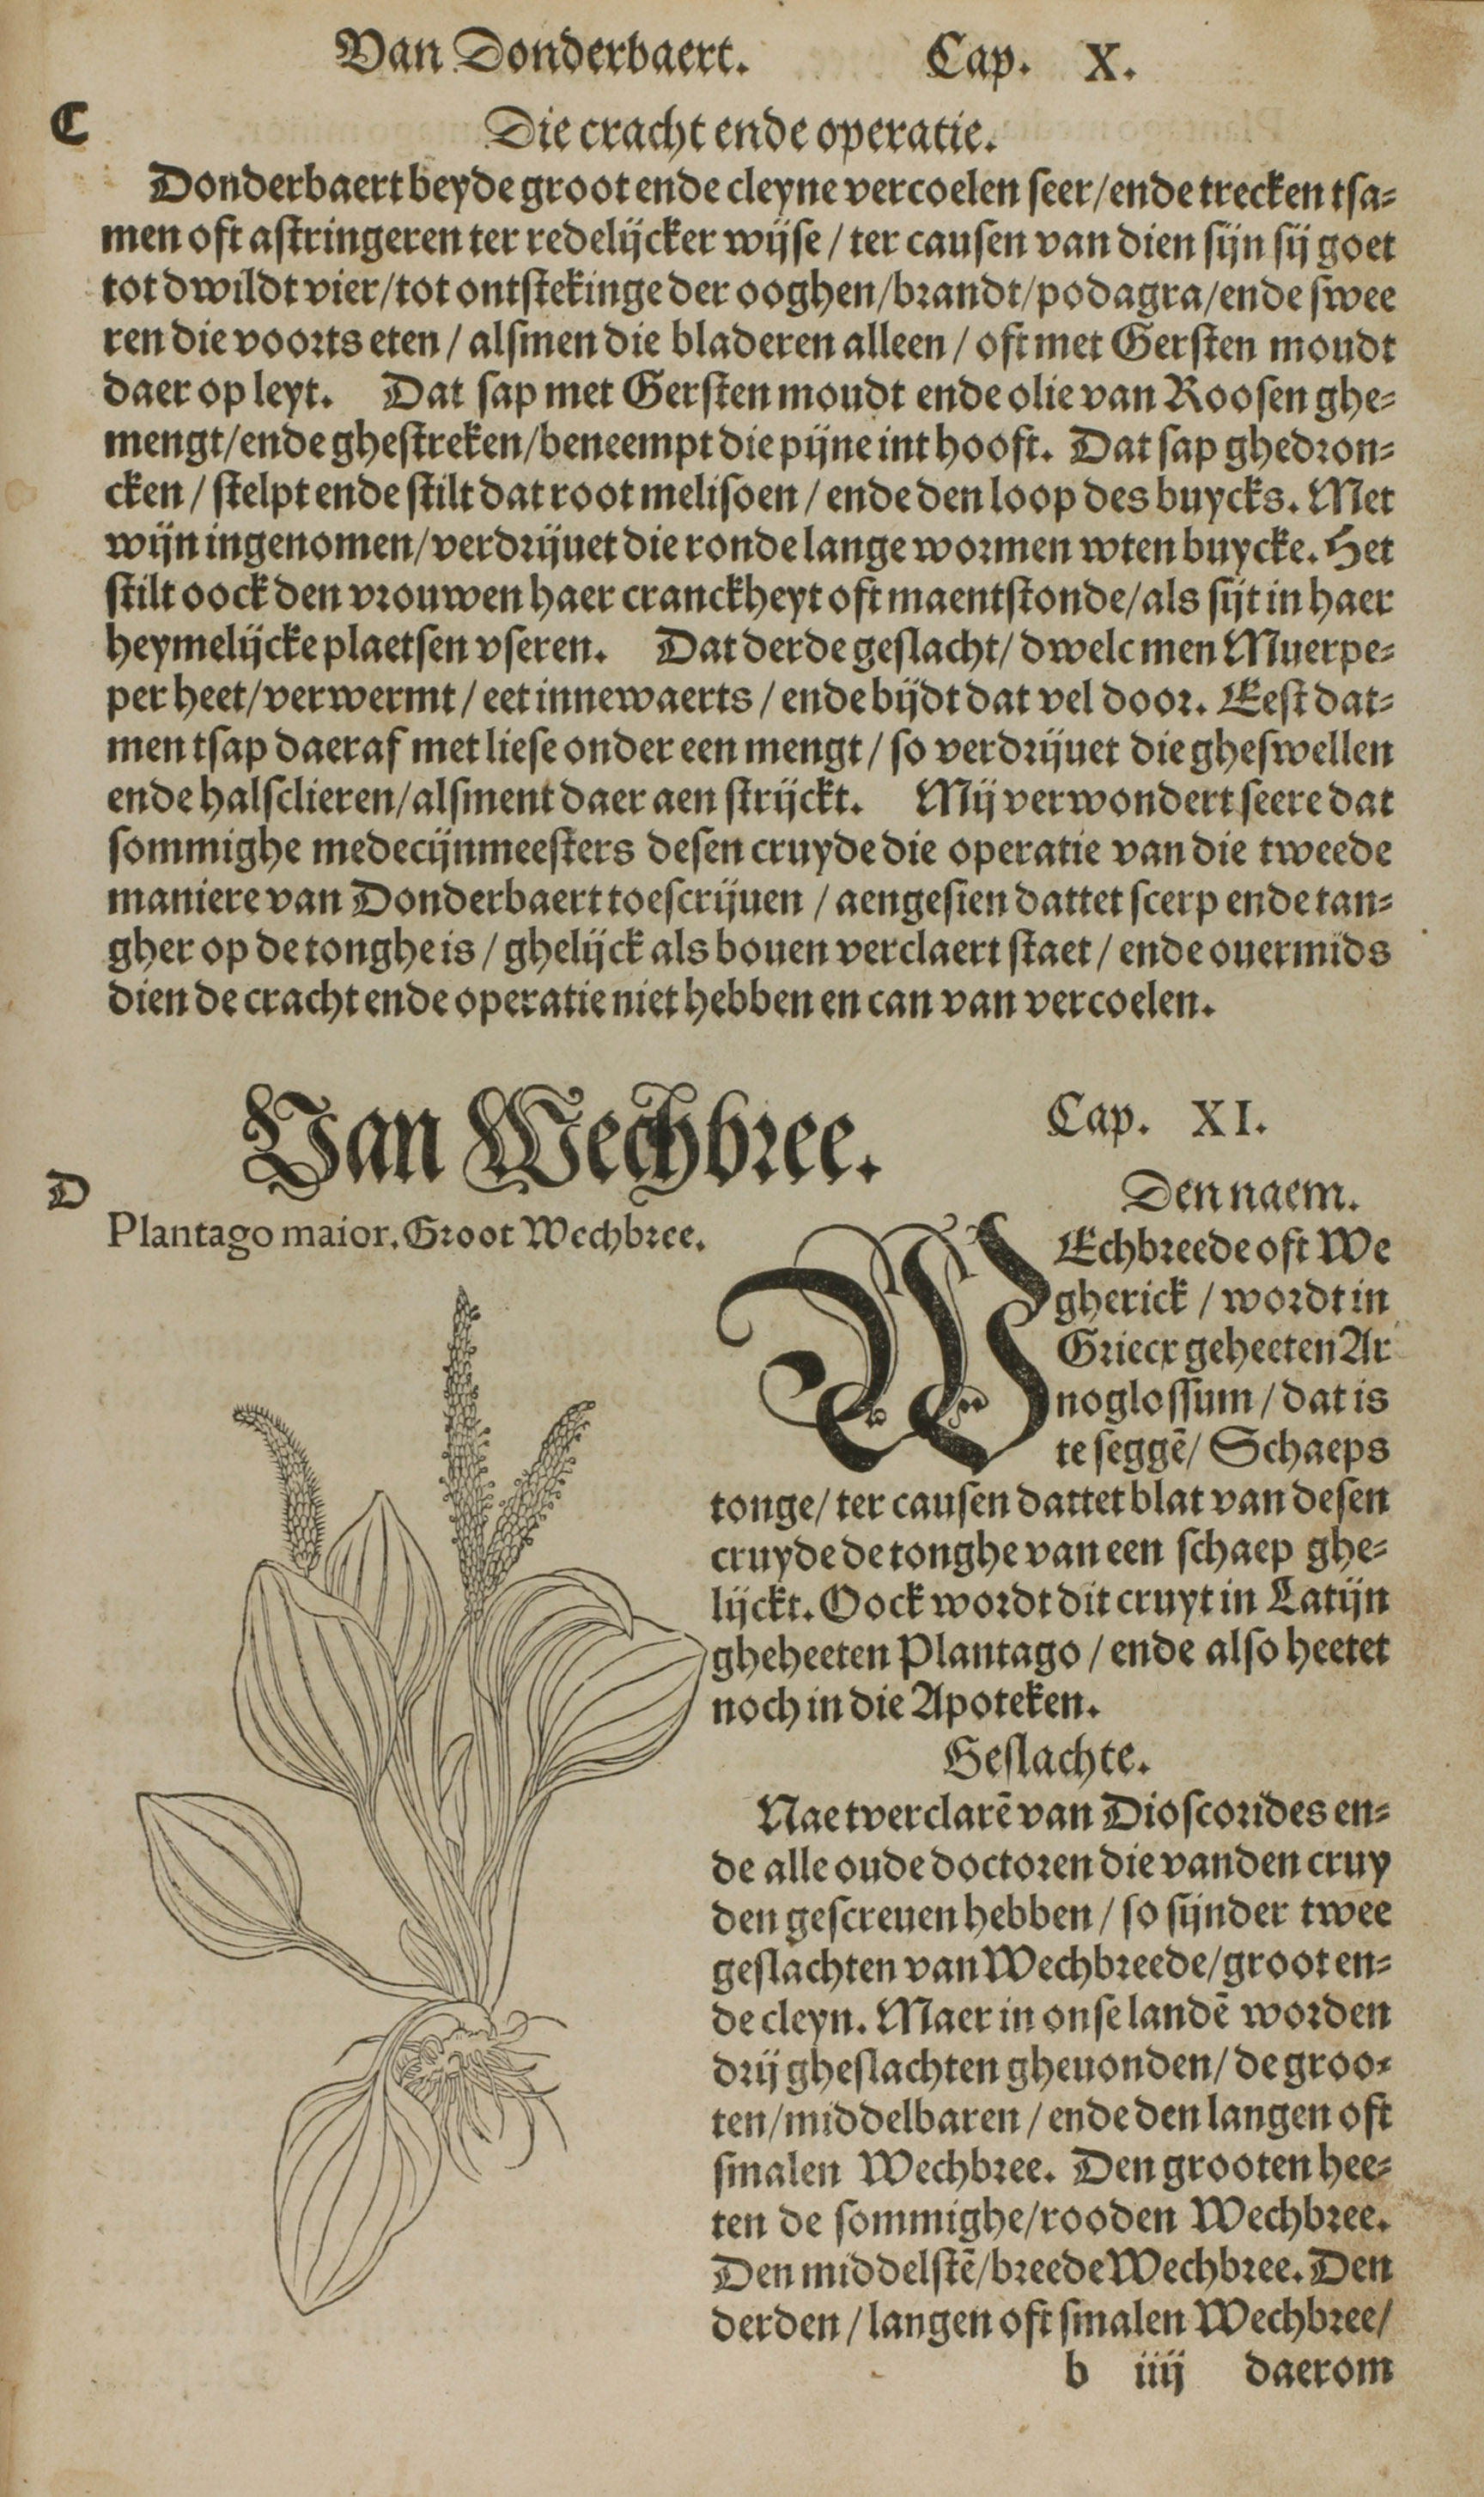 Van Donderbaert. Cap. X.
C
Die cracht ende operatie.
Donderbaert beyde groot ende cleyne vercoelen seer/ende trecken tsa-
men oft astringeren ter redelijcker wijse / ter causen van dien sijn sij goet
tot dwildt vier/tot ontstekinge der ooghen/brandt/podagra/ende swee
ren die voorts eten / alsmen die bladeren alleen / oft met Gersten moudt
daer op leyt. Dat sap met Gersten moudt ende olie van Roosen ghe-
mengt/ende ghestreken/beneempt die pijne int hooft. Dat sap ghedron-
cken / stelpt ende stilt dat root melisoen / ende den loop des buycks. Met
wijn ingenomen/verdrijuet die ronde lange wormen wten buycke. Het
stilt oock den vrouwen haer cranckheyt oft maentstonde/als sijt in haer
heymelijcke plaetsen vseren. Dat derde geslacht/ dwelc men Muerpe-
per heet/verwermt / eet innewaerts / ende bijdt dat vel door. Eest dat-
men tsap daeraf met liese onder een mengt / so verdrijuet die gheswellen
ende halsclieren/alsment daer aen strijckt. Mij verwondert seere dat
sommighe medecijnmeesters desen cruyde die operatie van die tweede
maniere van Donderbaert toescrijuen / aengesien dattet scerp ende tan-
gher op de tonghe is / ghelijck als bouen verclaert staet / ende ouermids
dien de cracht ende operatie niet hebben en can van vercoelen.
Van Wechbree. Cap. XI.
D
Plantago maior. Groot Wechbree.
Den naem.
WEchbreede oft We
gherick / wordt in
Griecx geheeten Ar
noglossum / dat is
te seggē/ Schaeps
tonge/ ter causen dattet blat van desen
cruyde de tonghe van een schaep ghe-
lijckt. Oock wordt dit cruyt in Latijn
gheheeten Plantago / ende also heetet
noch in die Apoteken.
Geslachte.
Nae tverclarē van Dioscorides en-
de alle oude doctoren die vanden cruy
den gescreuen hebben / so sijnder twee
geslachten van Wechbreede/groot en-
de cleyn. Maer in onse landē worden
drij gheslachten gheuonden/ de groo-
ten/middelbaren / ende den langen oft
smalen Wechbree. Den grooten hee-
ten de sommighe/rooden Wechbree.
Den middelstē/breede Wechbree. Den
derden / langen oft smalen Wechbree/
b iiij daerom